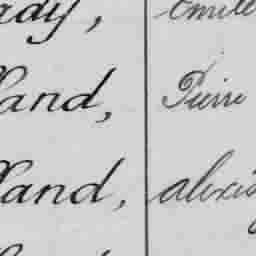 ady, Emile
land, Pierre
land, alexis